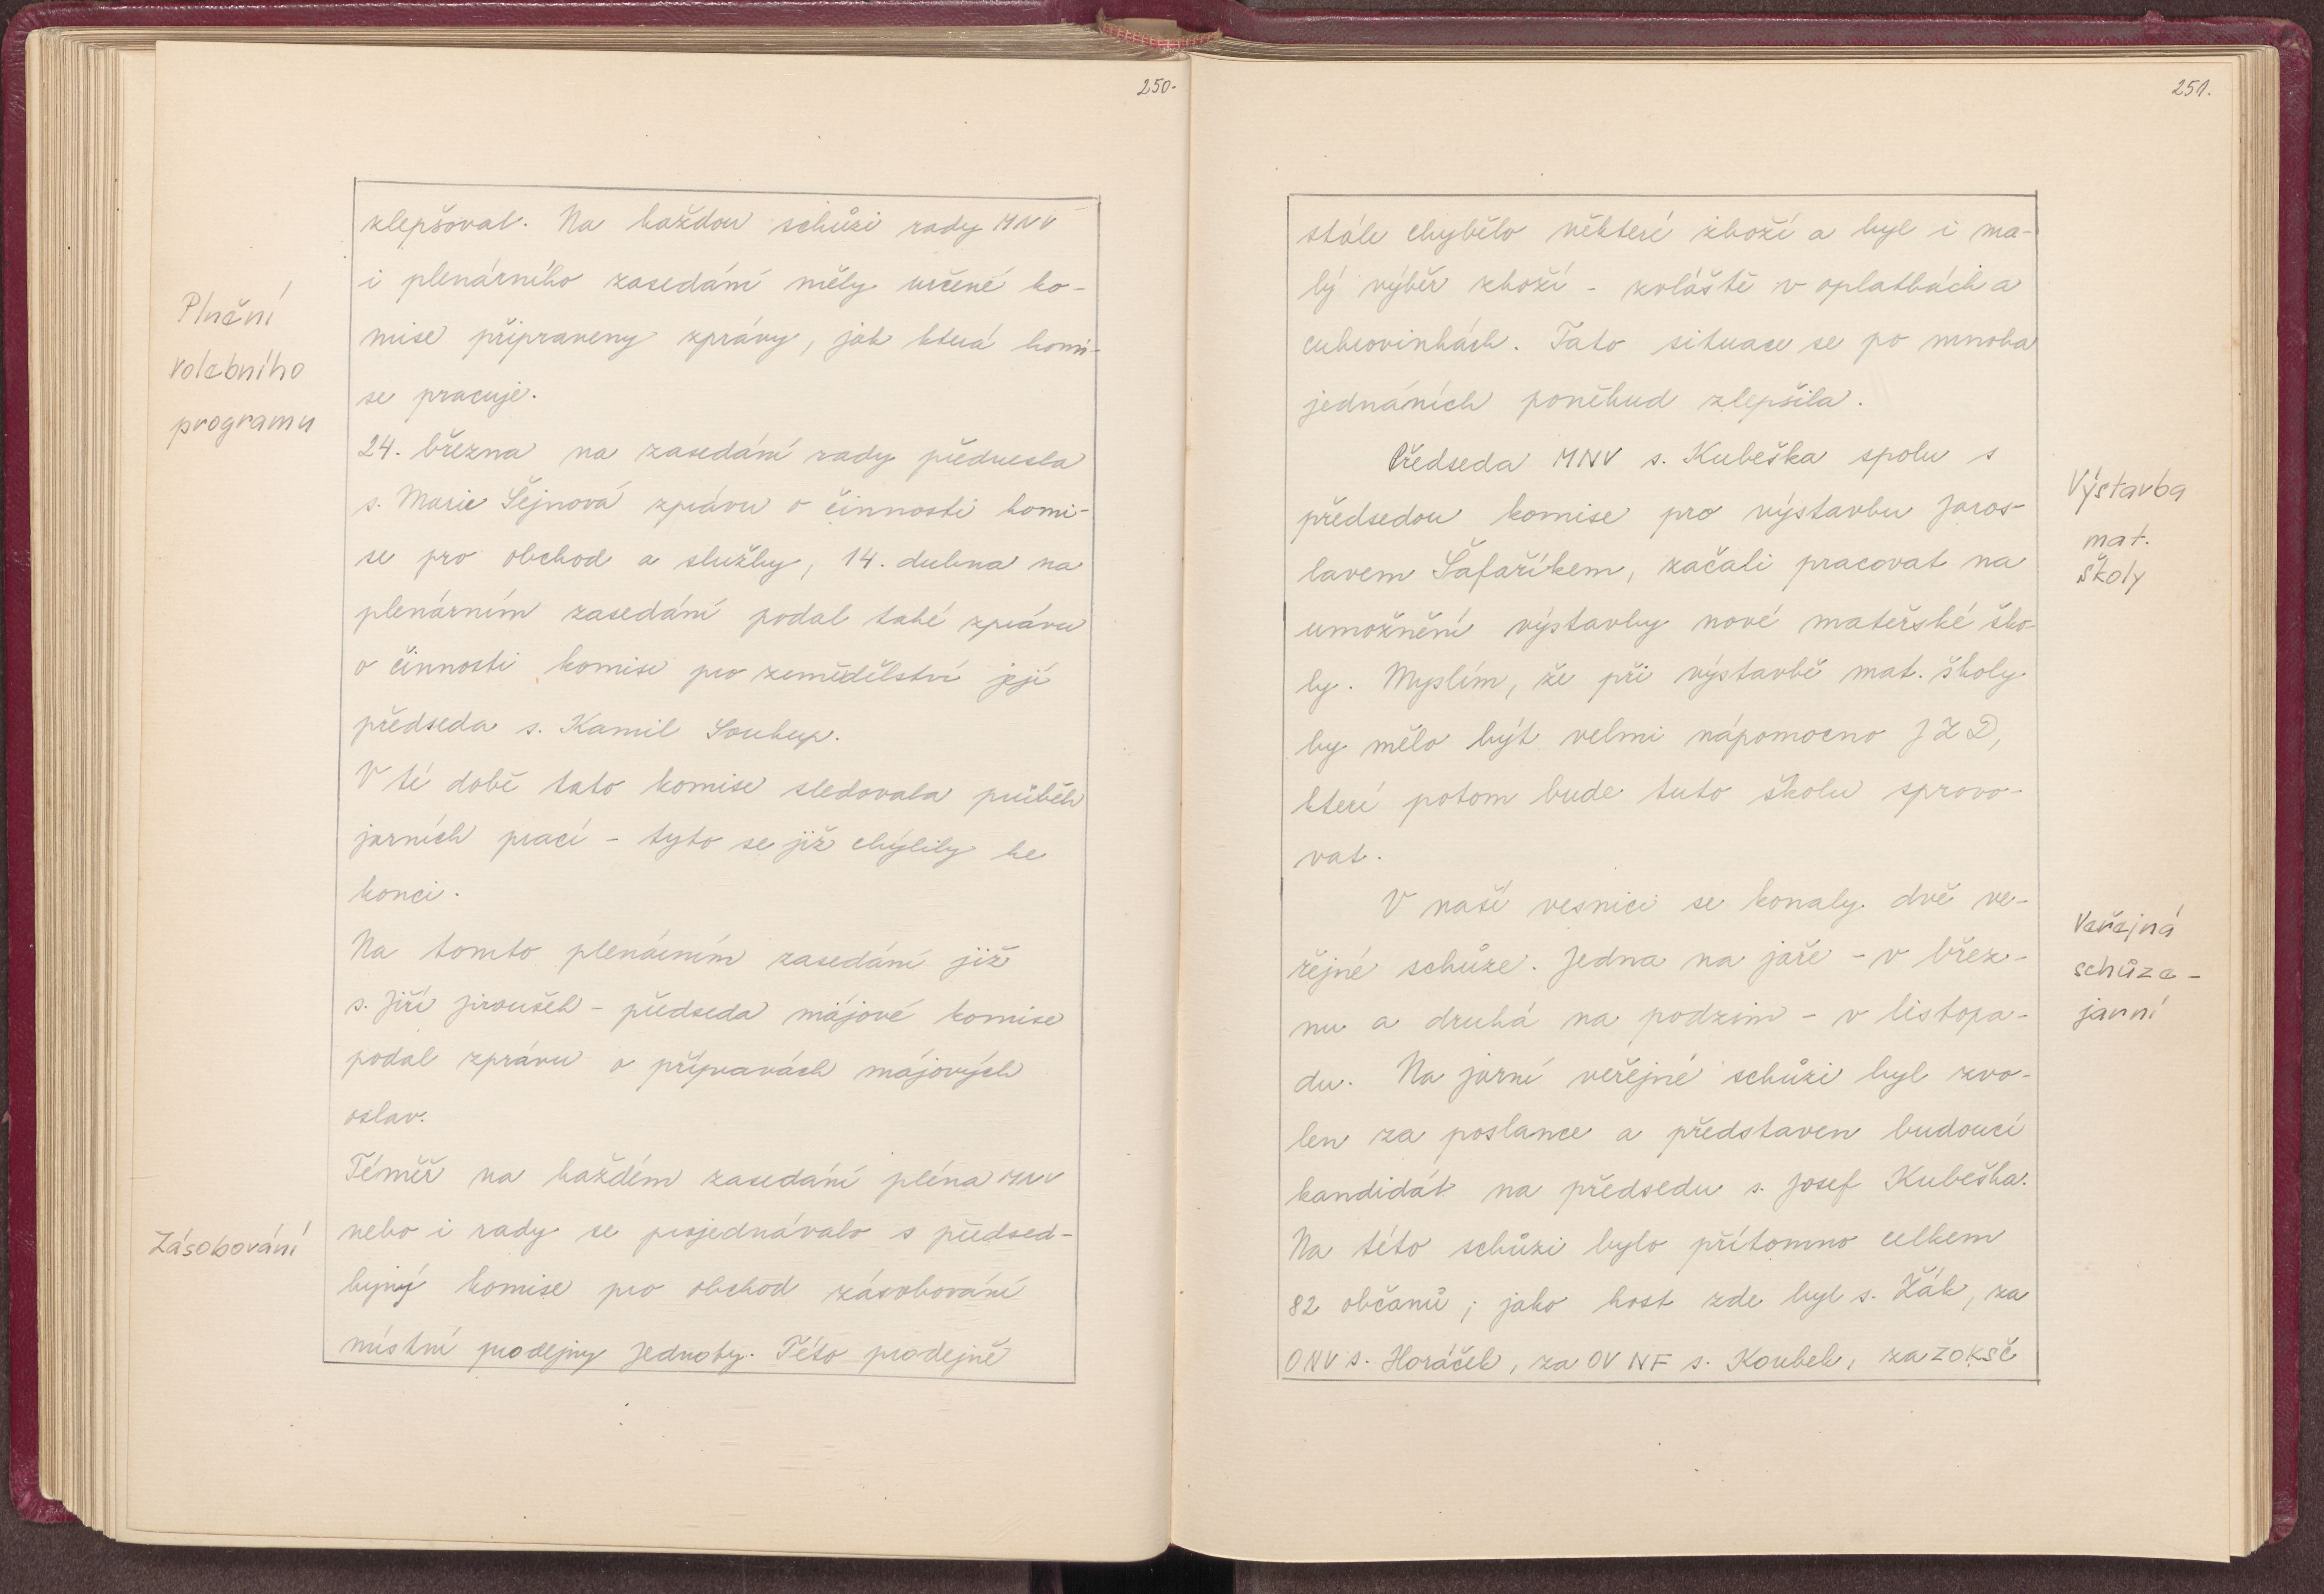 250.
zlepšoval. Na každou schůzi rady MNV
i plenárního zasedání měly určené ko-
mise připraveny zprávy, jak která komi-
se pracuje.
24. března na zasedání rady přednesla
s. Marie Šejnová zprávu o činnosti komi-
se pro obchod a služby, 14. dubna na
plenárním zasedání podal také zprávu
o činnosti komise pro zemědělství její
předseda s. Kamil Soukup.
V té době tato komise sledovala průběh
jarních prací - tyto se již chýlily ke
konci.
Na tomto plenárním zasedání již
s. Jiří Jiroušek - předseda májové komise
podal zprávu o přípravách májových
oslav.
Téměř na každém zasedání pléna MNV
nebo i rady se projednávalo s předsed-
kyní komise pro obchod zásobování
místní prodejny Jednoty. Této prodejně
Plnění
volebního
programu
Zásobování
251.
stále chybělo některé zboží a byl i ma-
lý výběr zboží - zvláště v oplatkách a
cukrovinkách. Tato situace se po mnoha
jednáních poněkud zlepšila.
Předseda MNV s. Kubeška spolu s
předsedou komise pro výstavbu Jaros-
lavem Šafaříkem, začali pracovat na
umožnění výstavby nové mateřské ško-
ly. Myslím, že při výstavbě mat. školy
by mělo být velmi nápomocno JZD,
které potom bude tuto školu sprovo-
vat.
V naší vesnici se konaly dvě ve-
řejné schůze. Jedna na jaře - v břez-
nu a druhá na podzim - v listopa-
du. Na jarní veřejné schůzi byl zvo-
len za poslance a představen budoucí
kandidát na předsedu s. Josef Kubeška.
Na této schůzi bylo přítomno celkem
82 občanů; jako host zde byl s. Žák, za
ONV s. Horáček, za OV NF s. Koubek, za ZOKSČ
Výstavba
mat.
školy
Veřejná
schůze -
jarní